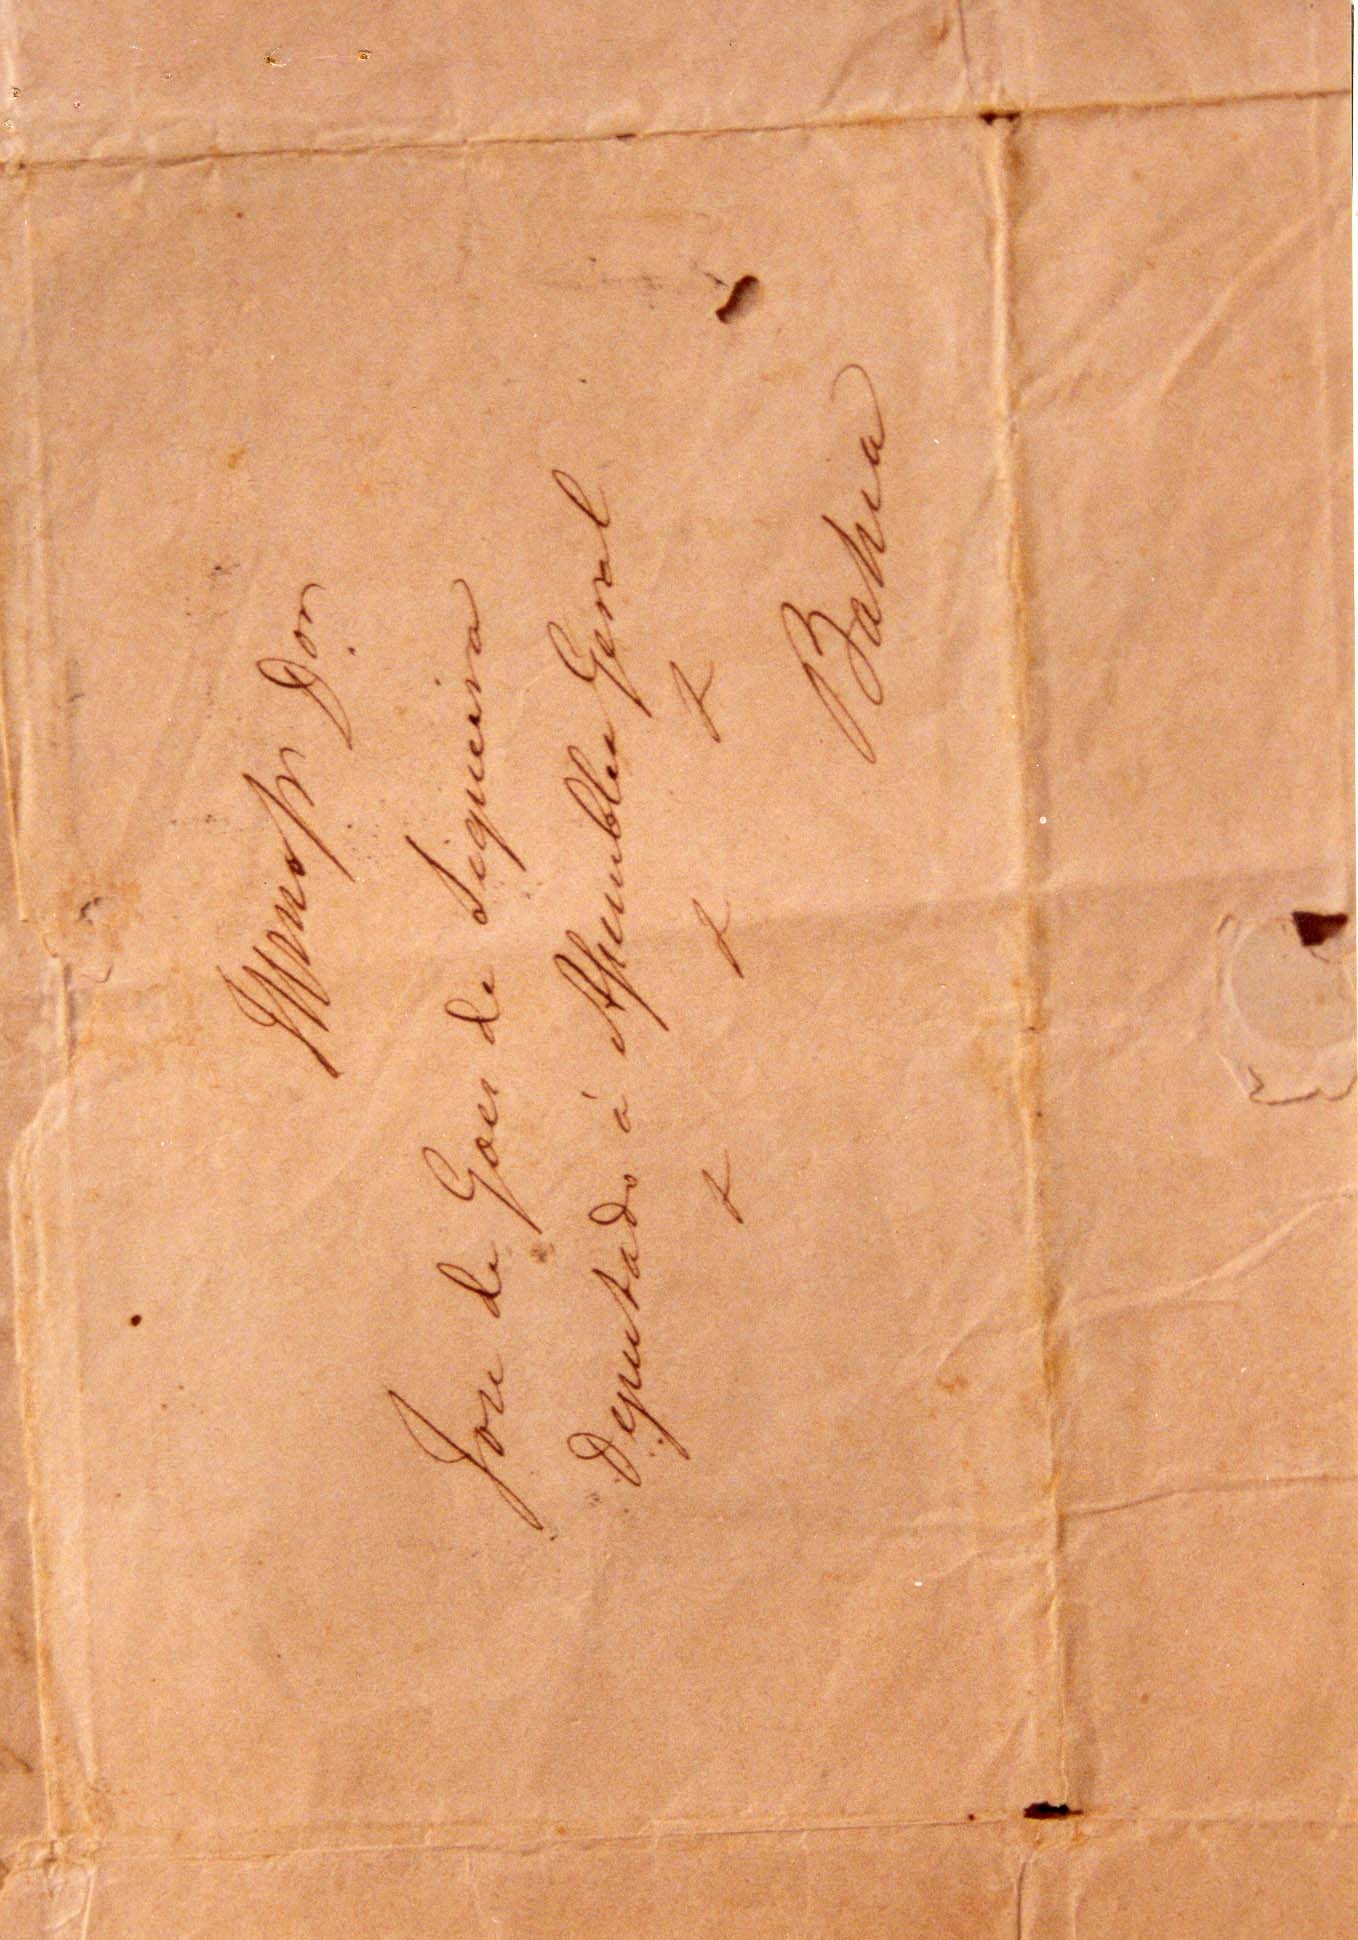 Illmo Sr Dor
Jose de Goes de Siqueira
Deputado á Assemblea Geral
& & &
Bahia